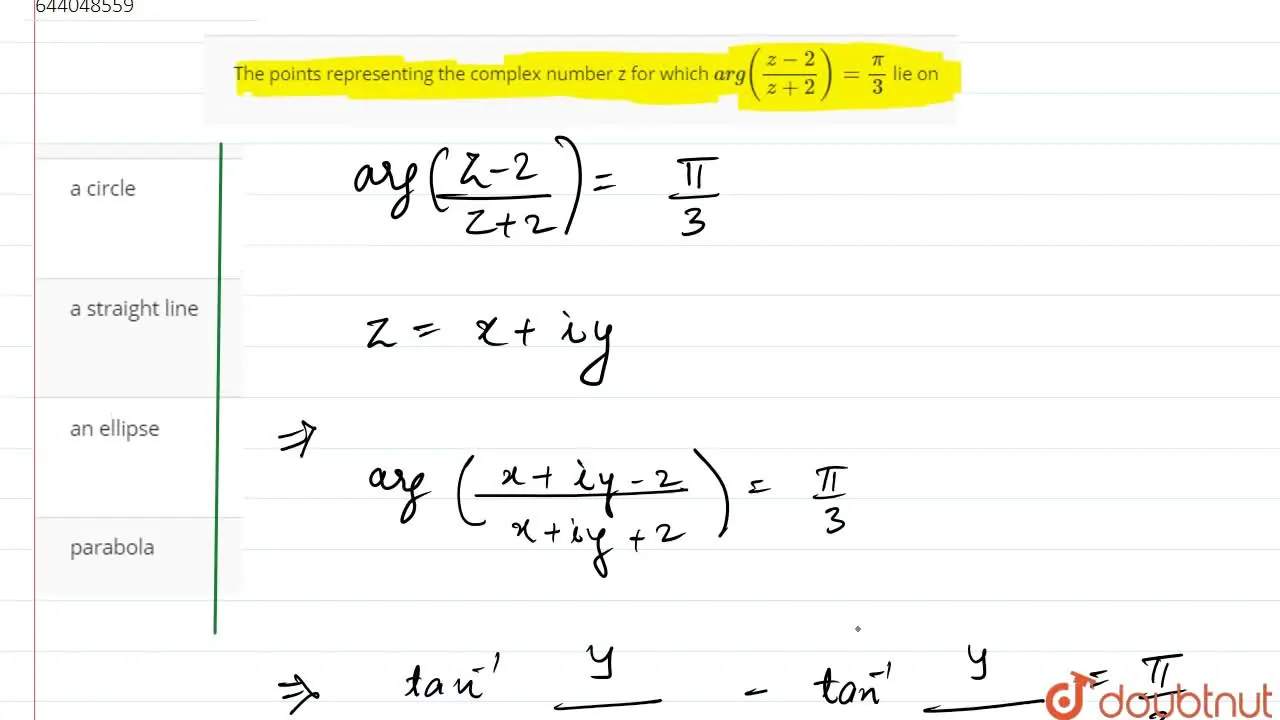 644048559
The points representing the complex number z for which arg((z − 2)/(z + 2)) = π/3 lie on
a circle
a straight line
an ellipse
parabola
arg((z-2)/(z+2)) = π/3
z = x + iy
⇒ arg((x + iy - 2)/(x + iy + 2)) = π/3
⇒ tan⁻¹ y/ - tan⁻¹ y/ = π/3
doubtnut